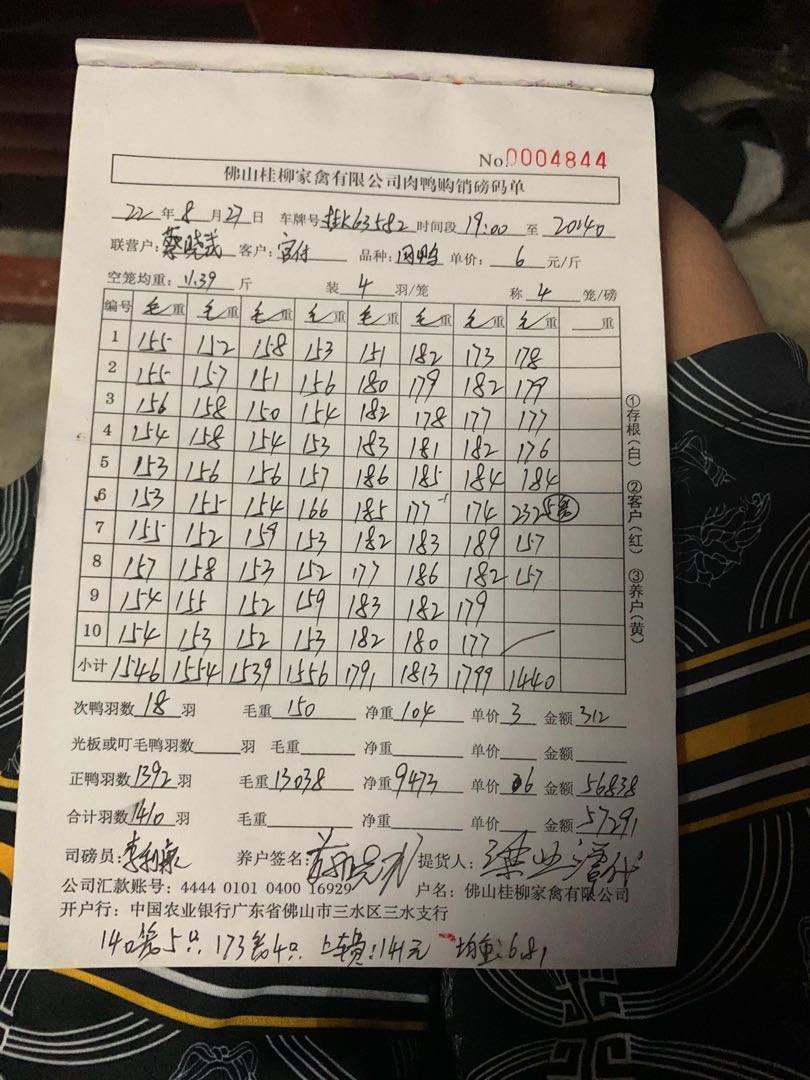 No.0004844
佛山桂柳家禽有限公司肉鸭购销磅码单
22年8月27日 车牌号桂K63582 时间段 19:00 至 20:40
联营户:蔡晓武 客户:官付 品种: 肉鸭 单价: 6 元/斤
空笼均重: 11.39 斤 装 4 羽/笼 称 4 笼/磅
编号 毛重 毛重 毛重 毛重 毛重 毛重 毛重 毛重 重
1 155 152 158 153 151 182 173 178
2 155 157 151 156 180 179 182 179
3 156 158 150 154 182 178 177 177
4 154 158 154 153 183 181 182 176
5 153 156 156 157 186 185 184 184
6 153 155 154 166 185 177-1 174 232 5笼
7 155 152 159 153 182 183 189 157
8 157 158 153 152 177 186 182 157
9 154 155 152 159 183 182 179
10 154 153 152 153 182 180 177
小计 1546 1554 1539 1556 1791 1813 1799 1440
①存根(白) ②客户(红) ③养户(黄)
次鸭羽数 18 羽 毛重 150 净重 104 单价 3 金额 312
光板或叮毛鸭羽数 羽 毛重 净重 单价 金额
正鸭羽数 1392 羽 毛重 13038 净重 9473 单价 6 金额 56838
合计羽数 1410 羽 毛重 净重 单价 金额 57291
司磅员: 养户签名: 提货人:
公司汇款账号: 4444 0101 0400 16929 户名: 佛山桂柳家禽有限公司
开户行: 中国农业银行广东省佛山市三水区三水支行
140笼5只, 173笼4只, 上车费:141元 均重:6.81